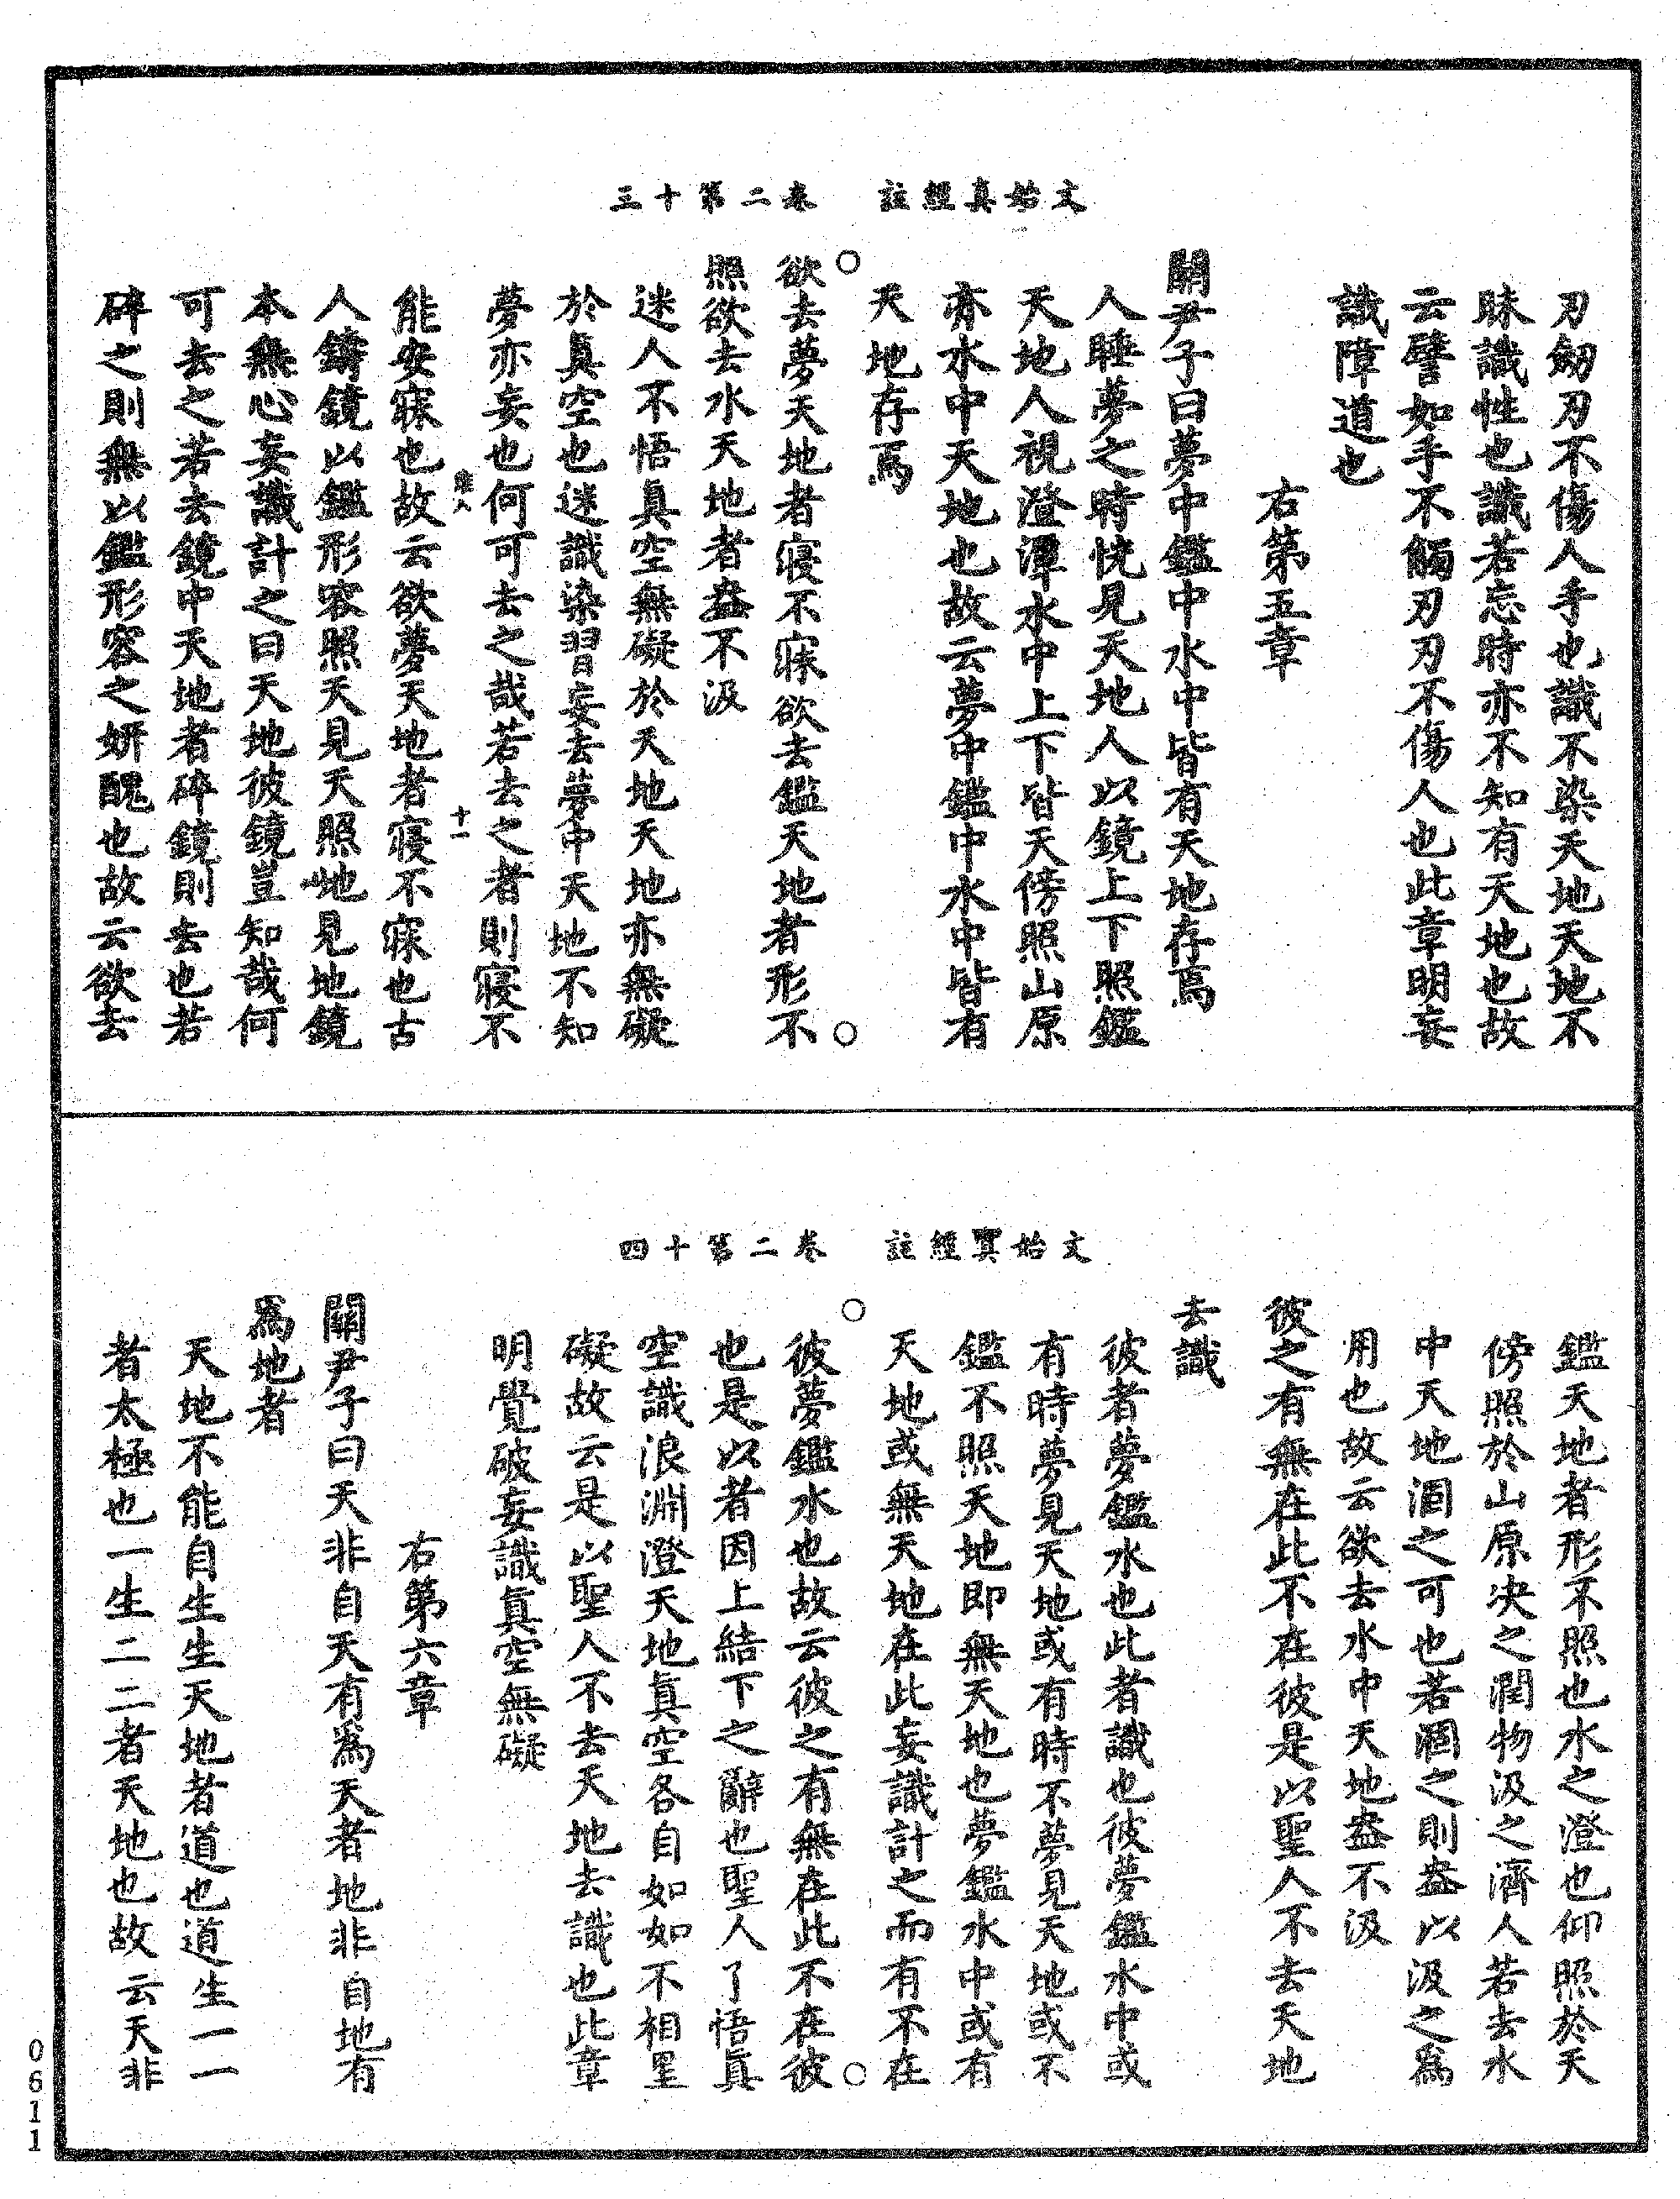 文始真經註　卷二第十三
刃劒刃不傷人手也識不染天地天地不
昧識性也識若忘時亦不知有天地也故
云譬如手不觸刃刃不傷人也此章明妄
識障道也
右第五章
關尹子曰夢中鑑中水中皆有天地存焉
人睡夢之時恍見天地人以鏡上下照鑑
天地人視澄潭水中上下皆天傍照山原
亦水中天地也故云夢中鑑中水中皆有
天地存焉
欲去夢天地者寢不寐欲去鑑天地者形不
照欲去水天地者盎不汲
迷人不悟真空無礙於天地天地亦無礙
於真空也迷識染習妄去夢中天地不知
夢亦妄也何可去之哉若去之者則寢不
十一
能安寐也故云欲夢天地者寢不寐也古
人鑄鏡以鑑形容照天見天照地見地鏡
本無心妄識計之曰天地彼鏡豈知哉何
可去之若去鏡中天地者碎鏡則去也若
碎之則無以鑑形容之妍醜也故云欲去
文始真經註　卷二第十四
鑑天地者形不照也水之澄也仰照於天
傍照於山原决之潤物汲之濟人若去水
中天地涸之可也若涸之則盎以汲之為
用也故云欲去水中天地盎不汲
彼之有無在此不在彼是以聖人不去天地
去識
彼者夢鑑水也此者識也彼夢鑑水中或
有時夢見天地或有時不夢見天地或不
鑑不照天地即無天地也夢鑑水中或有
天地或無天地在此妄識計之而有不在
彼夢鑑水也故云彼之有無在此不在彼
也是以者因上結下之辭也聖人了悟真
空識浪淵澄天地真空各自如如不相罣
礙故云是以聖人不去天地去識也此章
明覺破妄識真空無礙
右第六章
關尹子曰天非自天有為天者地非自地有
為地者
天地不能自生生天地者道也道生一一
者太極也一生二二者天地也故云天非
0611